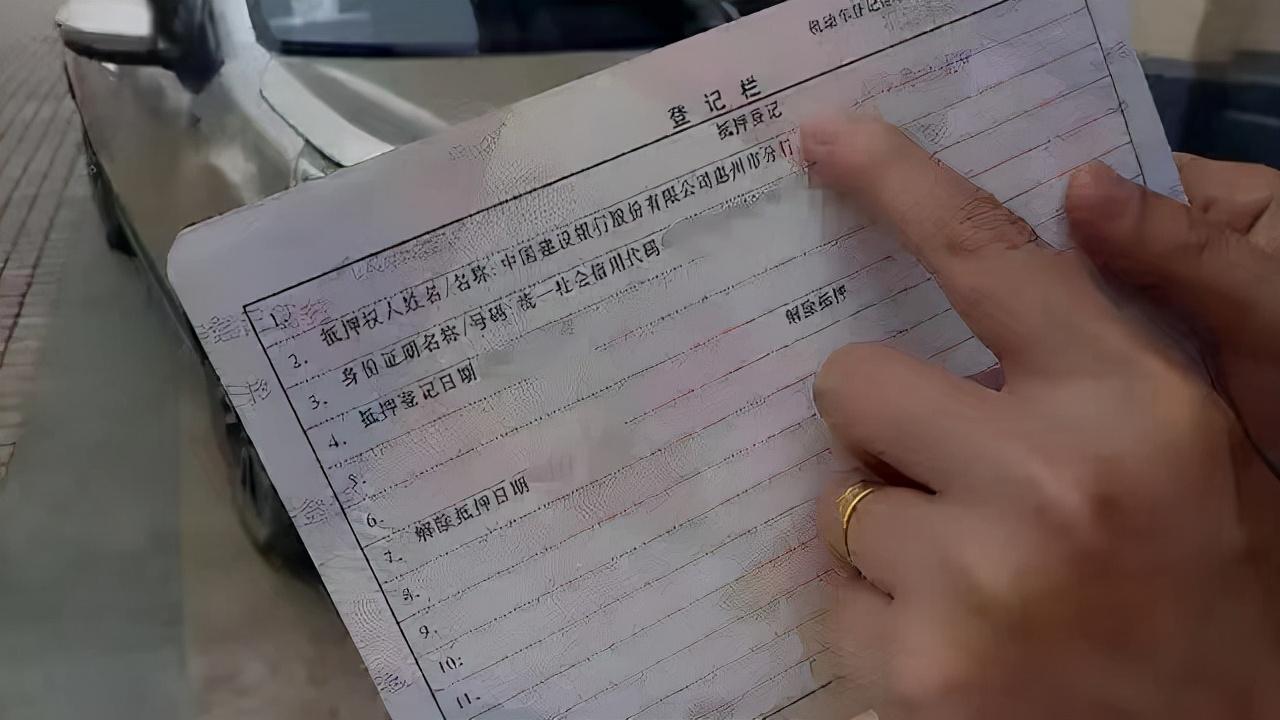 登记栏
抵押登记
1.
2. 抵押权人姓名/名称: 中国建设银行股份有限公司惠州市分行
3. 身份证明名称/号码 统一社会信用代码
4. 抵押登记日期
5.
解除抵押
6.
7. 解除抵押日期
8.
9.
10.
11.